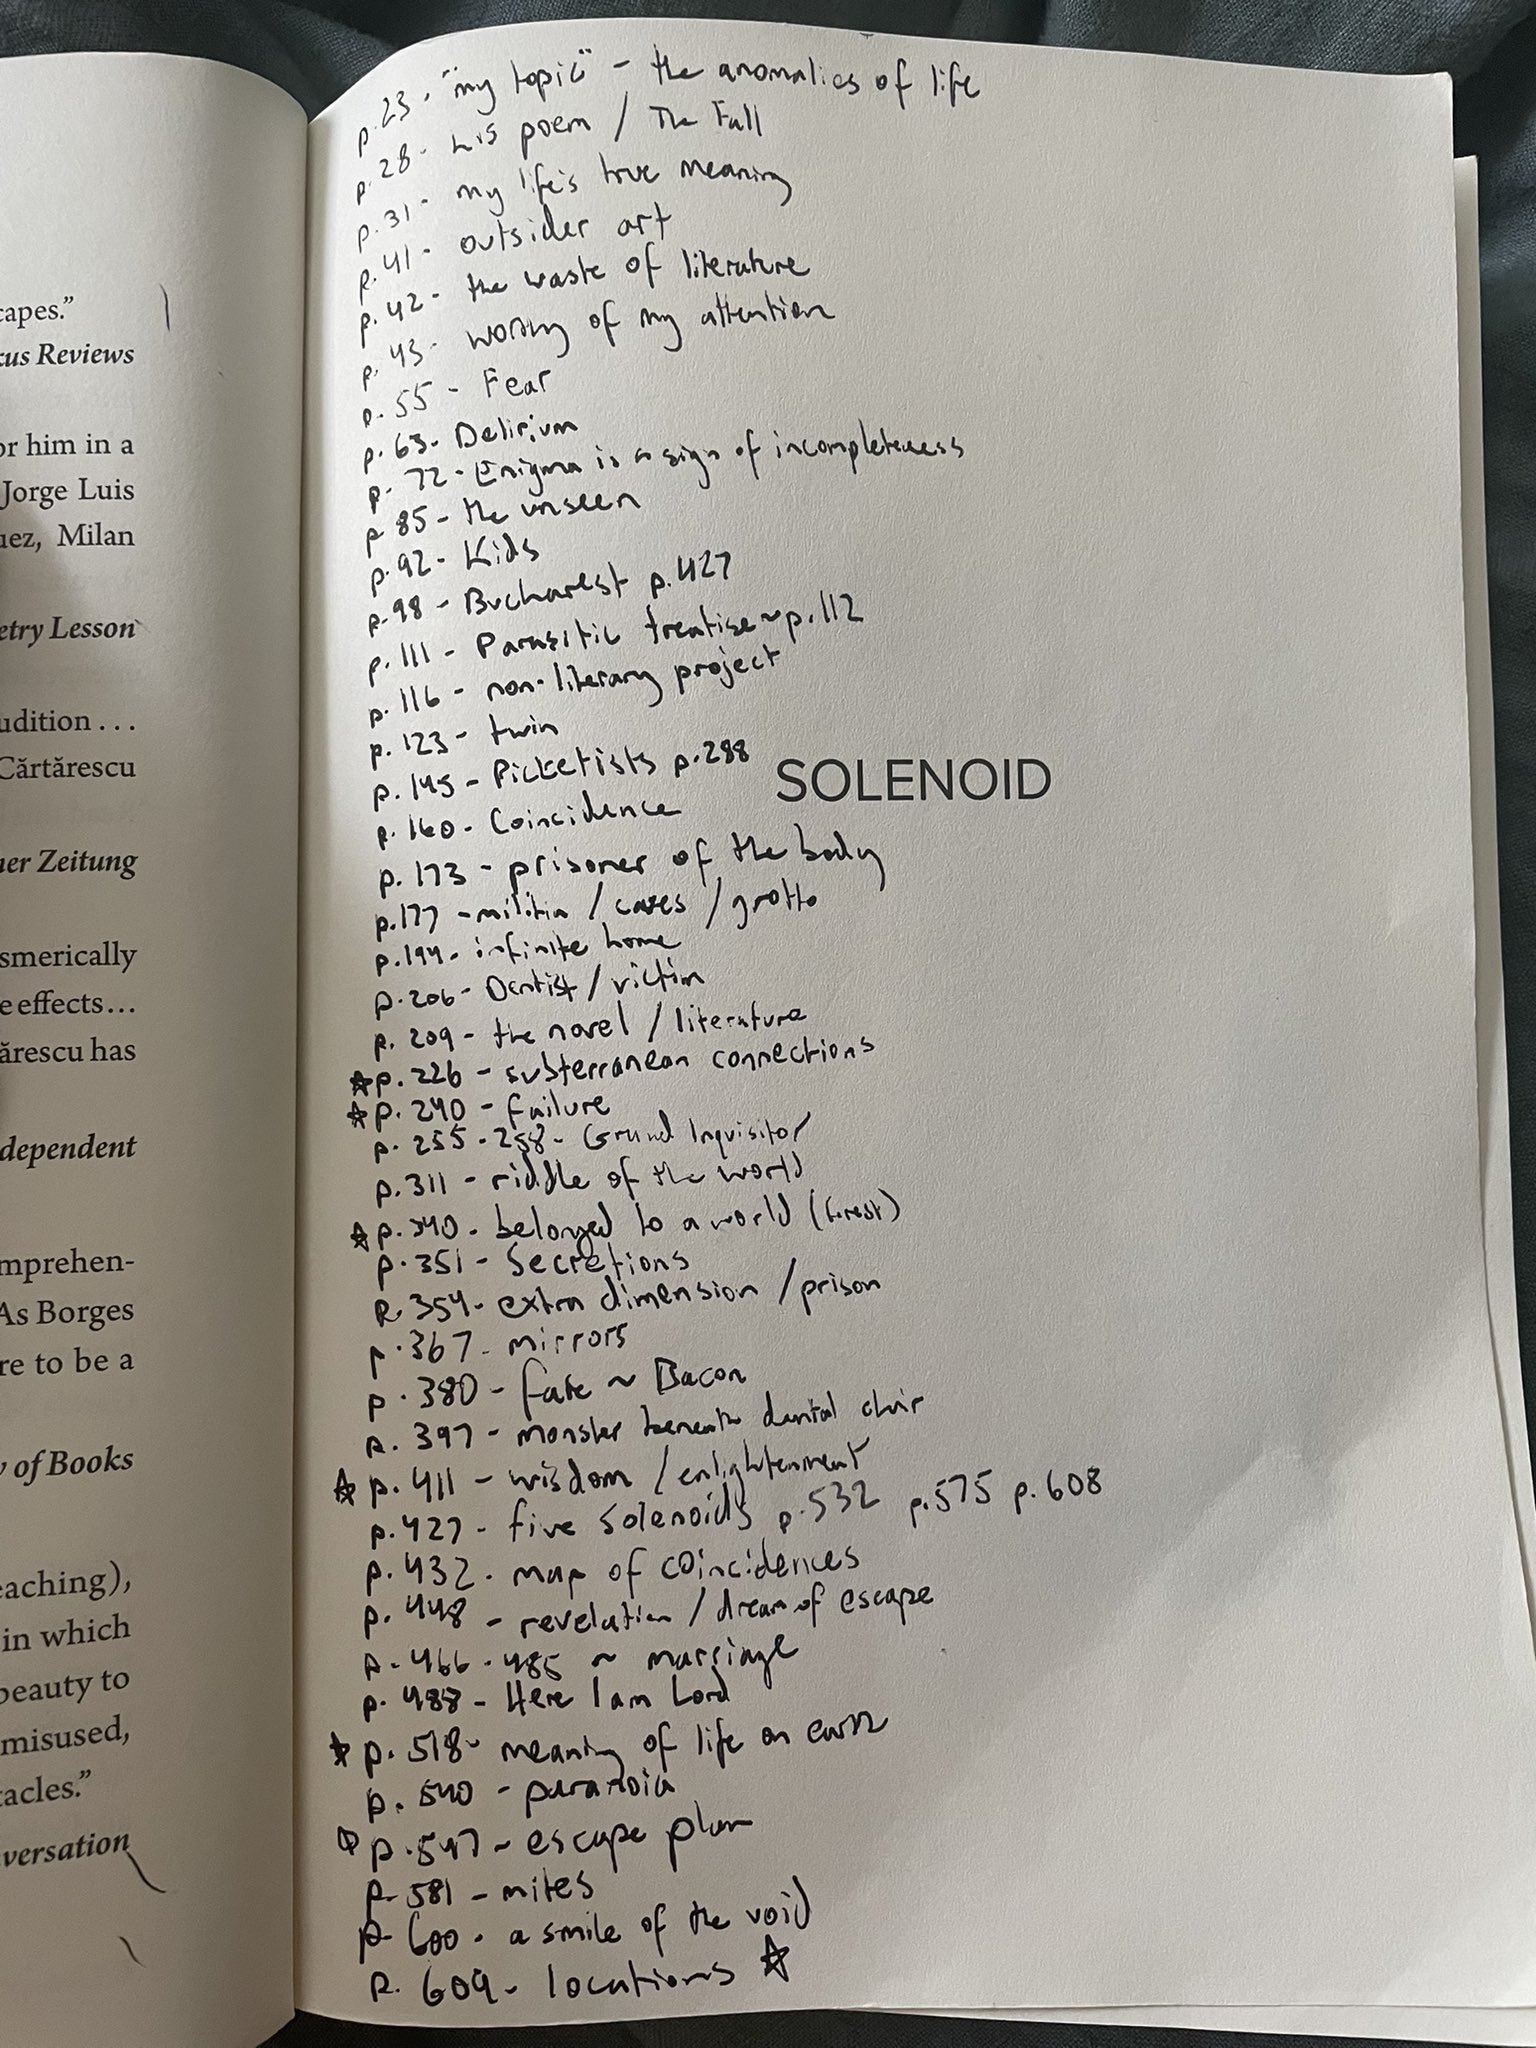 capes."
kus Reviews
or him in a
Jorge Luis
uez, Milan
etry Lesson
udition . . .
Cărtărescu
ner Zeitung
smerically
e effects...
ărescu has
dependent
mprehen-
As Borges
re to be a
y of Books
eaching),
in which
beauty to
misused,
tacles."
versation
p. 23 - "my topic" - the anomalies of life
p. 28 - his poem / The Fall
p. 31 - my life's true meaning
p. 41 - outsider art
p. 42 - the waste of literature
p. 43 - worthy of my attention
p. 55 - Fear
p. 63 - Delirium
p. 72 - Enigma is a sign of incompleteness
p. 85 - the unseen
p. 92 - Kids
p. 98 - Bucharest p. 427
p. 111 - Parasitic treatise ~ p. 112
p. 116 - non-literary project
p. 123 - twin
p. 145 - Picketists p. 288
SOLENOID
p. 160 - Coincidence
p. 173 - prisoner of the body
p. 177 - militia / caves / grotto
p. 194 - infinite home
p. 206 - Dentist / victim
p. 209 - the novel / literature
☆ p. 226 - subterranean connections
☆ p. 240 - failure
p. 255-258 - Grand Inquisitor
p. 311 - riddle of the world
☆ p. 340 - belonged to a world (forest)
p. 351 - Secretions
p. 354 - extra dimension / prison
p. 367 - mirrors
p. 380 - fate ~ Bacon
p. 397 - monster beneath dental chair
☆ p. 411 - wisdom / enlightenment
p. 427 - five solenoids p. 532 p. 575 p. 608
p. 432 - map of coincidences
p. 448 - revelation / dream of escape
p. 466-485 ~ marriage
p. 488 - Here I am Lord
☆ p. 518 - meaning of life on earth
p. 540 - paranoia
p. 547 - escape plan
p. 581 - mites
p. 600 - a smile of the void
p. 609 - locations ☆